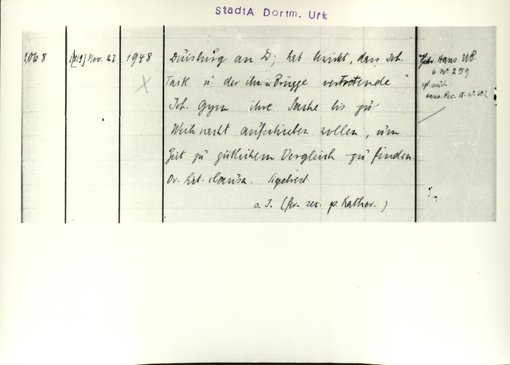 StadtA Dortm. Urk
2068 [14]19 Nov. 27 1948 Duisburg an D; hat bewirkt, dass Joh.
Tack u der ihn in Brügge vertretende
Joh. Gyen ihre Sache bis zu
Weihnacht aufschieben wollen, um
Zeit zu gütlichem Vergleich zu finden
Or. Lit. clausa. besiegelt
a. S. (fer. sec. p Kather.)
Hans UB.
6 No 299